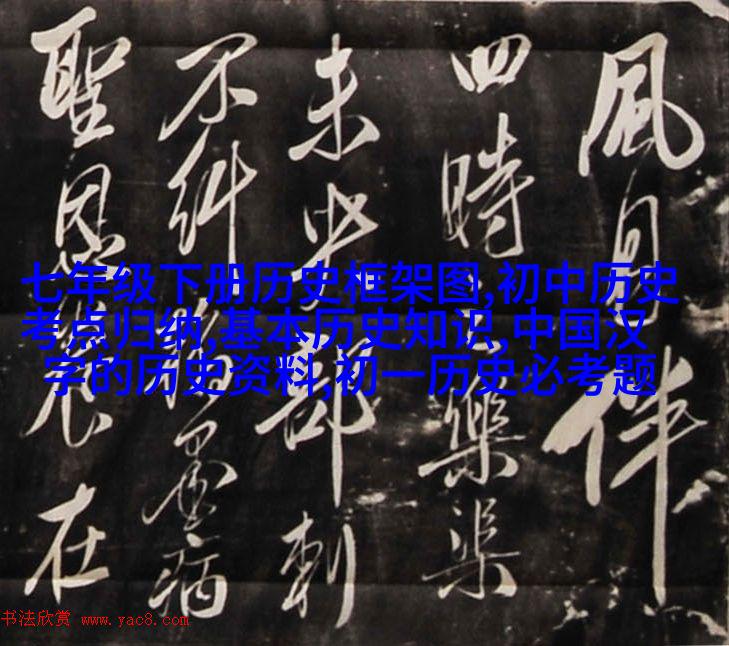 風月伴
四時樂柒
未部刺
不糾墨病
聖恩在
七年级下册历史框架图,初中历史
考点归纳,基本历史知识,中国汉
字的历史资料,初一历史必考题
书法欣赏 www.yac8.com